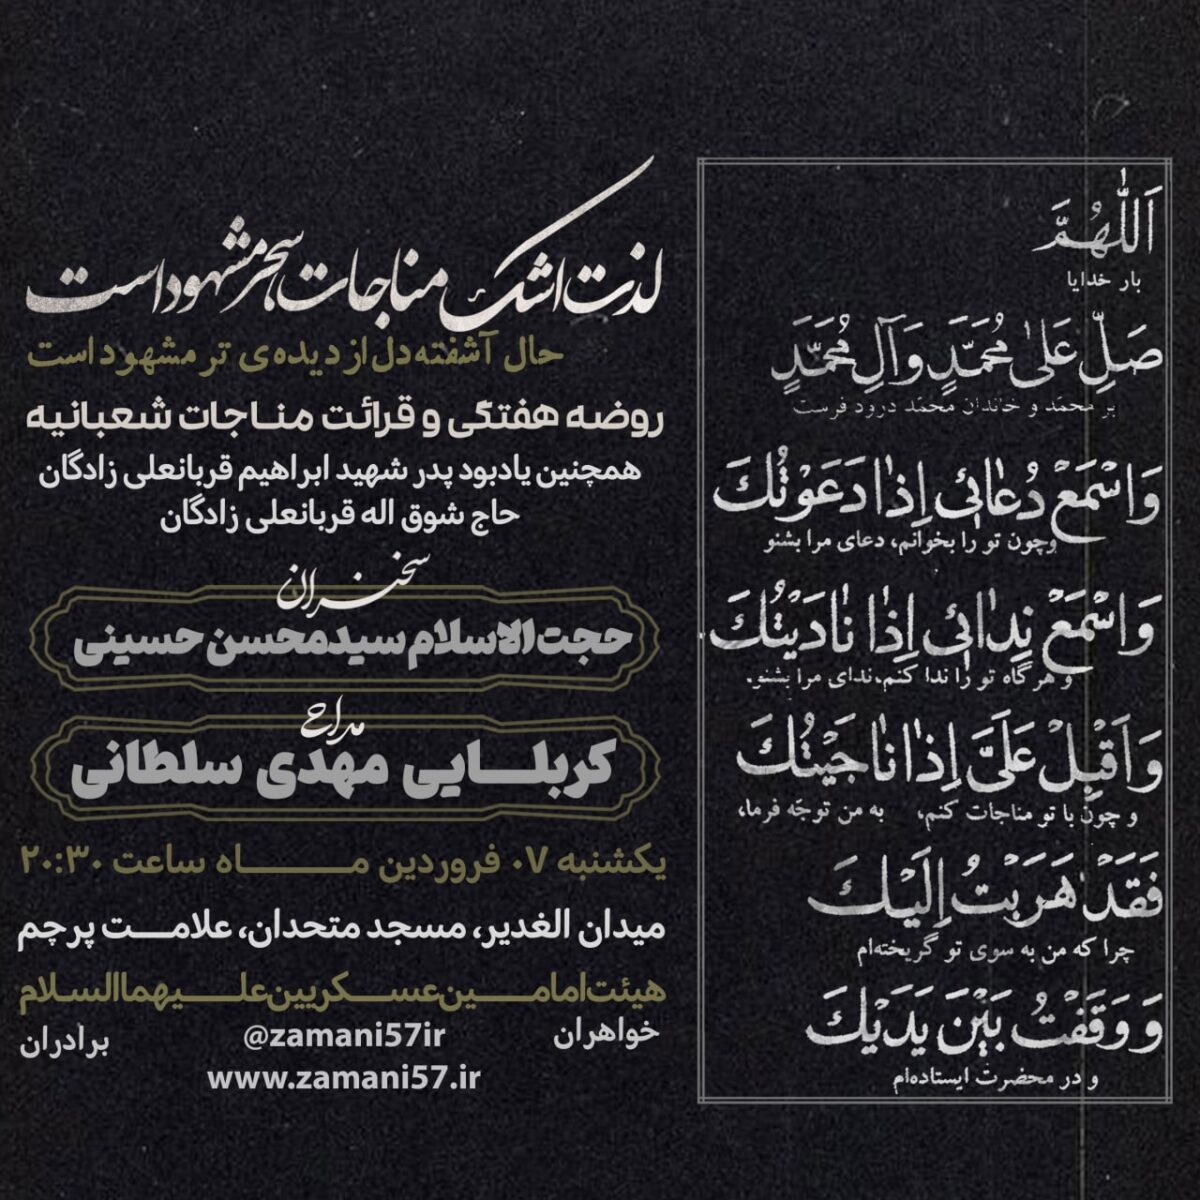 اَللّٰهُمَّ
بار خدایا
صَلِّ عَلىٰ مُحَمَّدٍ وَآلِ مُحَمَّدٍ
بر محمّد و خاندان محمّد درود فرست
وَاسْمَعْ دُعٰائى اِذٰا دَعَوْتُكَ
وچون تو را بخوانم، دعای مرا بشنو
وَاسْمَعْ نِدٰائى اِذٰا نٰادَيْتُكَ
و هرگاه تو را ندا کنم،ندای مرا بشنو.
وَاَقْبِلْ عَلَىَّ اِذٰا نٰاجَيْتُكَ
و چون با تو مناجات کنم، به من توجّه فرما،
فَقَدْ هَرَبْتُ اِلَيْكَ
چرا که من به سوی تو گریخته‌ام
وَ وَقَفْتُ بَيْنَ يَدَيْكَ
و در محضرت ایستاده‌ام
لذت اشک مناجات سحر مشهود است
حال آشفته دل از دیده‌ی تر مشهود است
روضه هفتگی و قرائت مناجات شعبانیه
همچنین یادبود پدر شهید ابراهیم قربانعلی زادگان
حاج شوق اله قربانعلی زادگان
سخنران
حجت الاسلام سید محسن حسینی
مداح
کربلایی مهدی سلطانی
یکشنبه ۰۷ فروردین ماه ساعت ۲۰:۳۰
میدان الغدیر، مسجد متحدان، علامت پرچم
هیئت امامین عسکریین علیهما السلام
خواهران @zamani57ir برادران
www.zamani57.ir